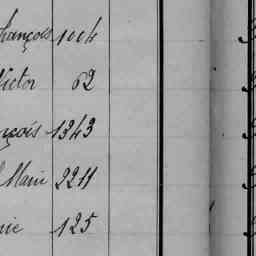 françois 1004
Victor 62
nçois 1343
Marie 2211
nie 125